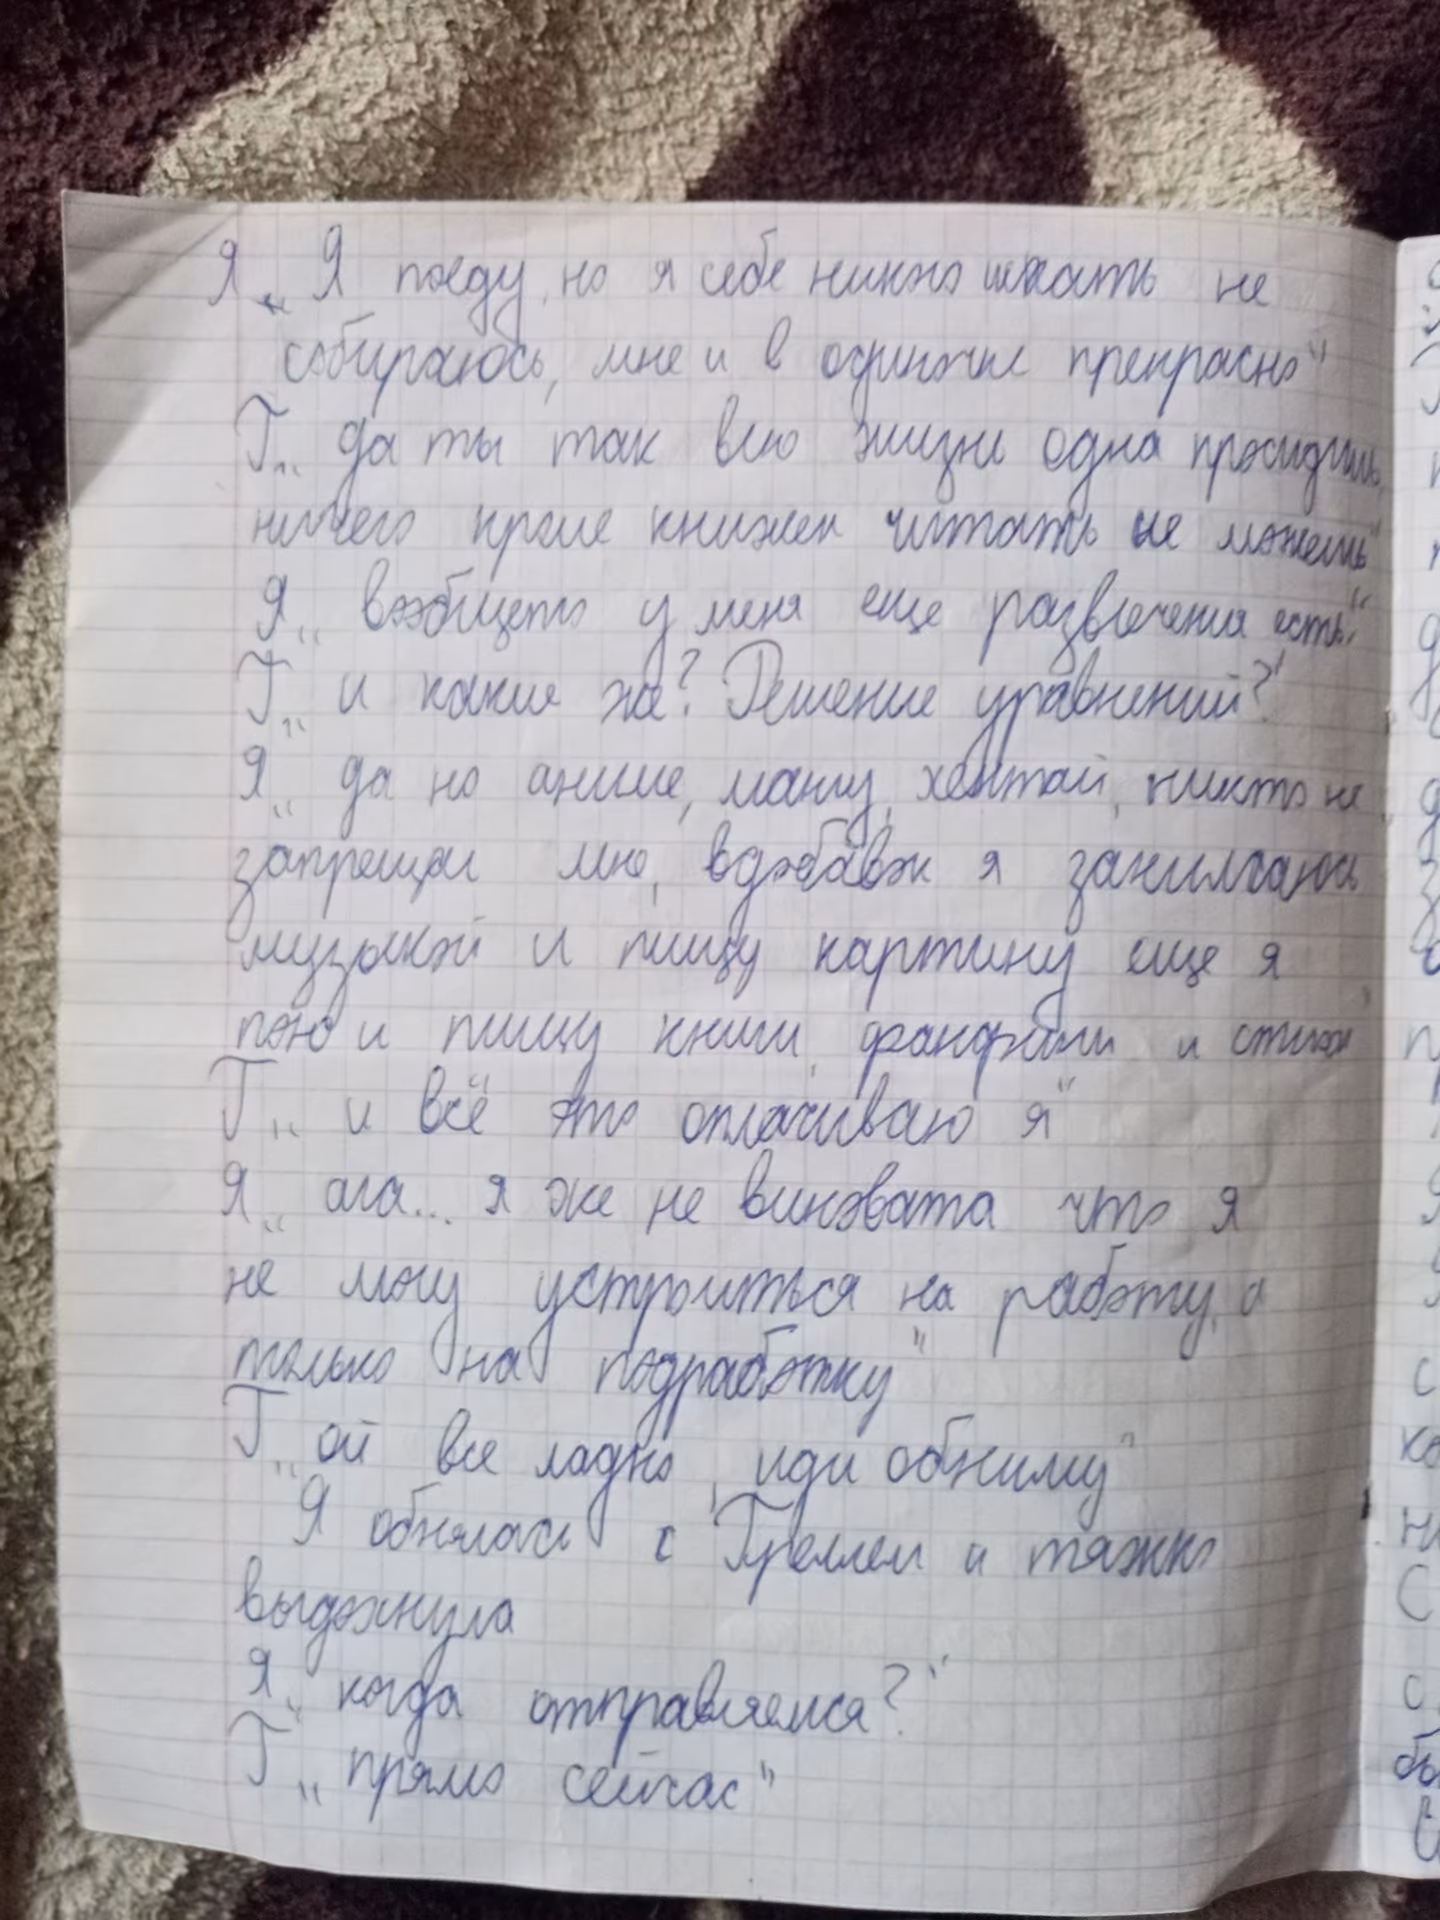 Я „ Я поеду, но я себе никого искать не
собираюсь, мне и в одиночке прекрасно"
Г „ да ты так всю жизнь одна просидишь,
ничего кроме книжек читать не можешь"
Я „ вообщето у меня еще развлечения есть"
Г „ и какие же? Решение уравнений?"
Я „ да но аниме, мангу, хентай, никто не
запрещал мне, вдобавок я занимаюсь
музыкой и пишу картину еще я
пою и пишу книги, фанфики и стихи"
Г „ и всё это оплачиваю я"
Я „ ага... я же не виновата что я
не могу устроиться на работу, а
только на подработку"
Г „ ой все ладно, иди обниму"
Я обнялась с Греллем и тяжко
выдохнула
Я „ когда отправляемся?"
Г „ прямо сейчас"